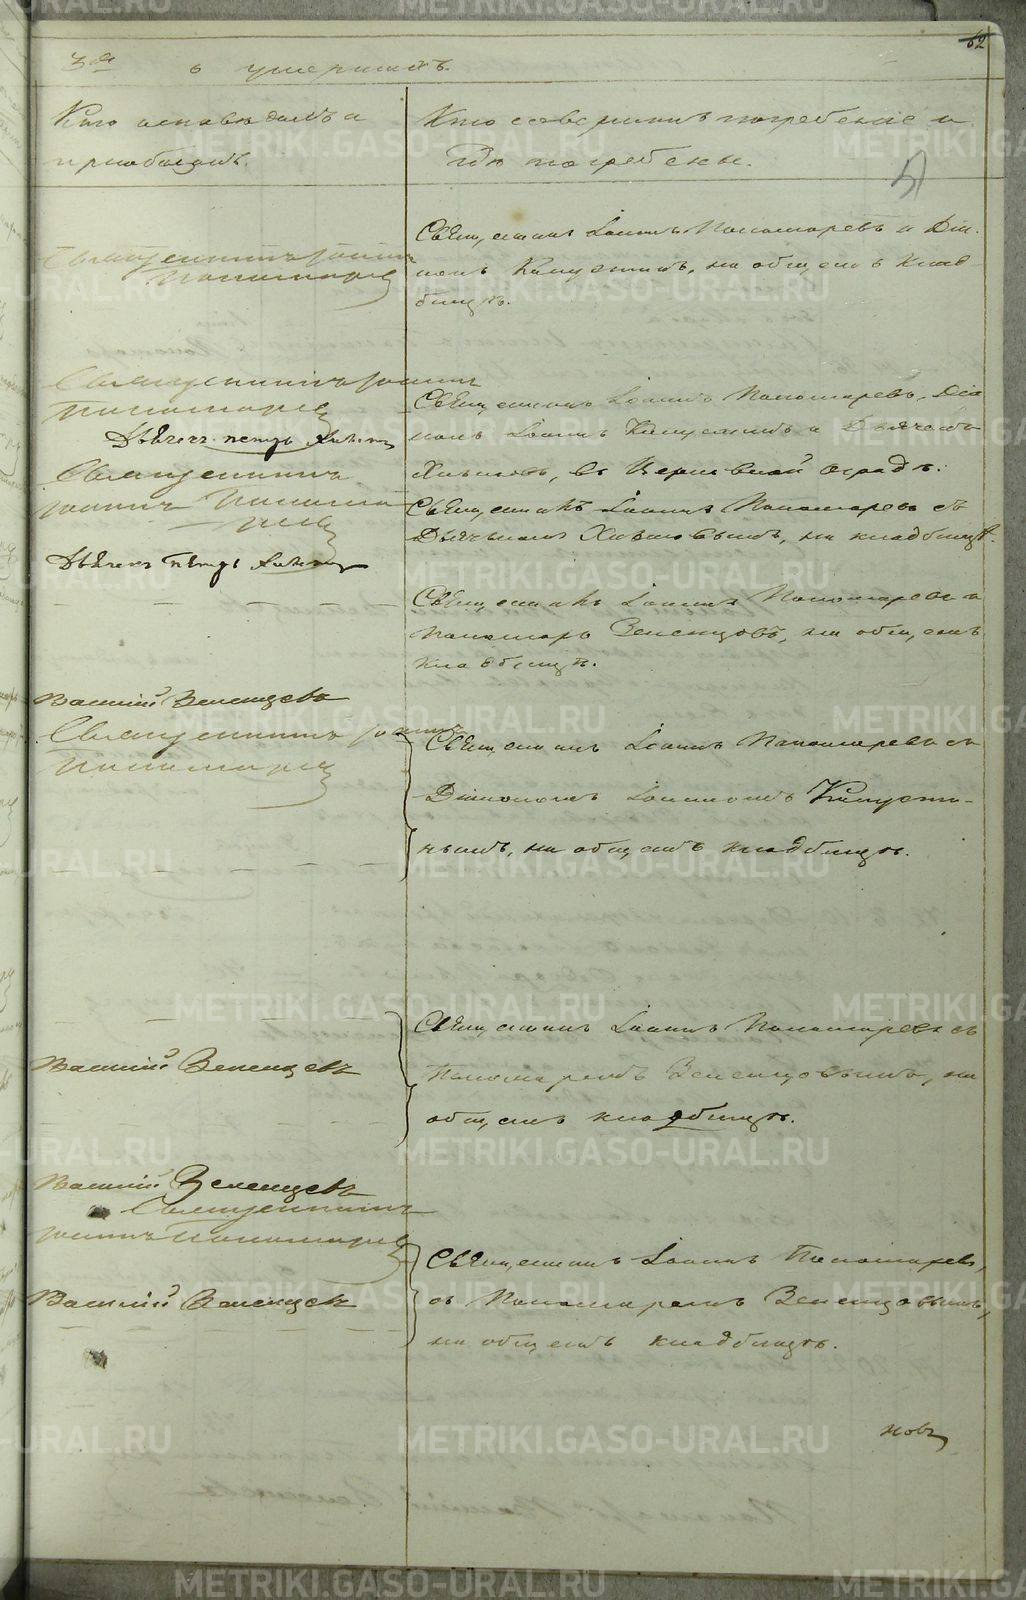 62
3й о умершихъ.
Кто исповѣдалъ и
пріобщалъ.
Кто совершилъ погребеніе и
гдѣ погребены.
51
Священникъ Іоаннъ
Пономаревъ
Священникъ Іоаннъ Пономаревъ и Діа-
конъ Капустинъ, на общемъ клад-
бищѣ.
Священникъ Іоаннъ
Пономаревъ
Дьячекъ Петръ
Священникъ Іоаннъ Пономаревъ, Діа
конъ Іоаннъ Капустинъ и Дьячекъ
въ Церковной оградѣ.
Священникъ
Іоаннъ Понома
ревъ
Дьячекъ Петръ
Священникъ Іоаннъ Пономаревъ съ
Дьячкомъ на кладбищѣ.
Священникъ Іоаннъ Пономаревъ и
Пономарь Зеленцовъ, на общемъ
кладбищѣ.
Василій Зеленцовъ
Священникъ Іоаннъ
Пономаревъ
Священникъ Іоаннъ Пономаревъ съ
Діакономъ Іоанномъ Капусти-
нымъ, на общемъ кладбищѣ.
Василій Зеленцовъ
Священникъ Іоаннъ Пономаревъ съ
Пономаремъ Зеленцовымъ, на
общемъ кладбищѣ.
Василій Зеленцовъ
Священникъ
Іоаннъ Пономаревъ
Василій Зеленцовъ
Священникъ Іоаннъ Пономаревъ,
съ Пономаремъ Зеленцовымъ,
на общемъ кладбищѣ.
новъ
METRIKI.GASO-URAL.RU